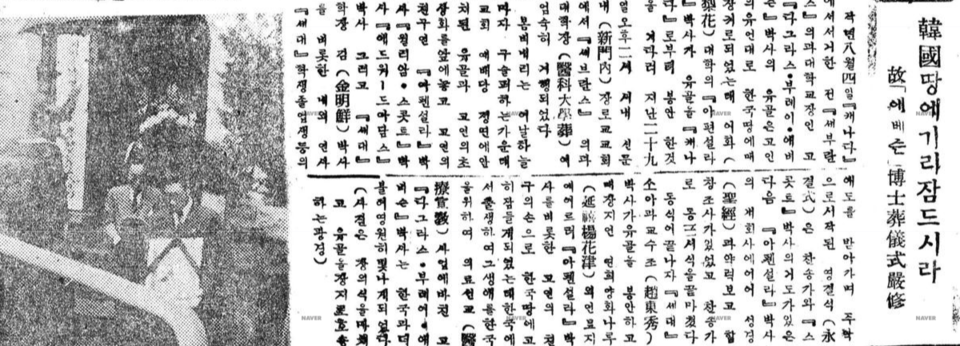 韓國땅에기리잠드시라
故『에베슨』博士葬儀式嚴修
작년八월四일『캐나다』
에서서거한 전『세부란
스』의과대학교장인 고
『다그라스•부레이•에비
슨』박사의 유골은고인
의유언대로 한국땅에매
장키로되었는데 이화(
梨花)대학의『아펜설라
』박사가 유골을『캐나
다』로부터 봉안 한것
을 기다려 지난二十九
일오후二시 시내 신문
내(新門內)장로교회
에서『세브란스』의과
대학장(醫科大學葬)에
업숙히 거행되었다
봄비내리는 이날하늘
마자 구슬퍼하는가운데
교회 예배당 정면에안
치된 유골과 고인의초
상화를앞에놓고 고인의
친구인『아펜설라』박
사『윌리암•스콧트』박
사『에드워ㅡ드아담스』
박사 그리고『세대』
학장 김(金明鮮)박사
를 비롯한 내외 인사
『세대』학생졸업생등의
애도를 받아가며 주악
으로서작된 영결식(永
결式)은 찬송가와『스
곳트』박사의기도가있은
다음『아펜설라』박사
의 제회사에이어 성경
(聖經)과약력보고 합
창조사가있었고 찬송가
로 동三시식을끝마쳤다
동식이끝나자『세대』
소아과교수조(趙東秀)
박사가유골을 봉안하고
매장지인 연희양화나루
(延禧楊花津)외인묘지
에이르러『아펜설라』박
사를비롯한 고인의 친
구의손으로 한국땅에고
히잠들게되었는데한국에
서출생하여그생애를한국
을위하여 의료선교(醫
療宣敎)사업에바친 고
『다그라스•부레이•에
비슨』박사는 한국과더
불어영원히빛나게되었다
(사진은 장의식을마치
고 유골을장지로호송
하는광경)
NAVER